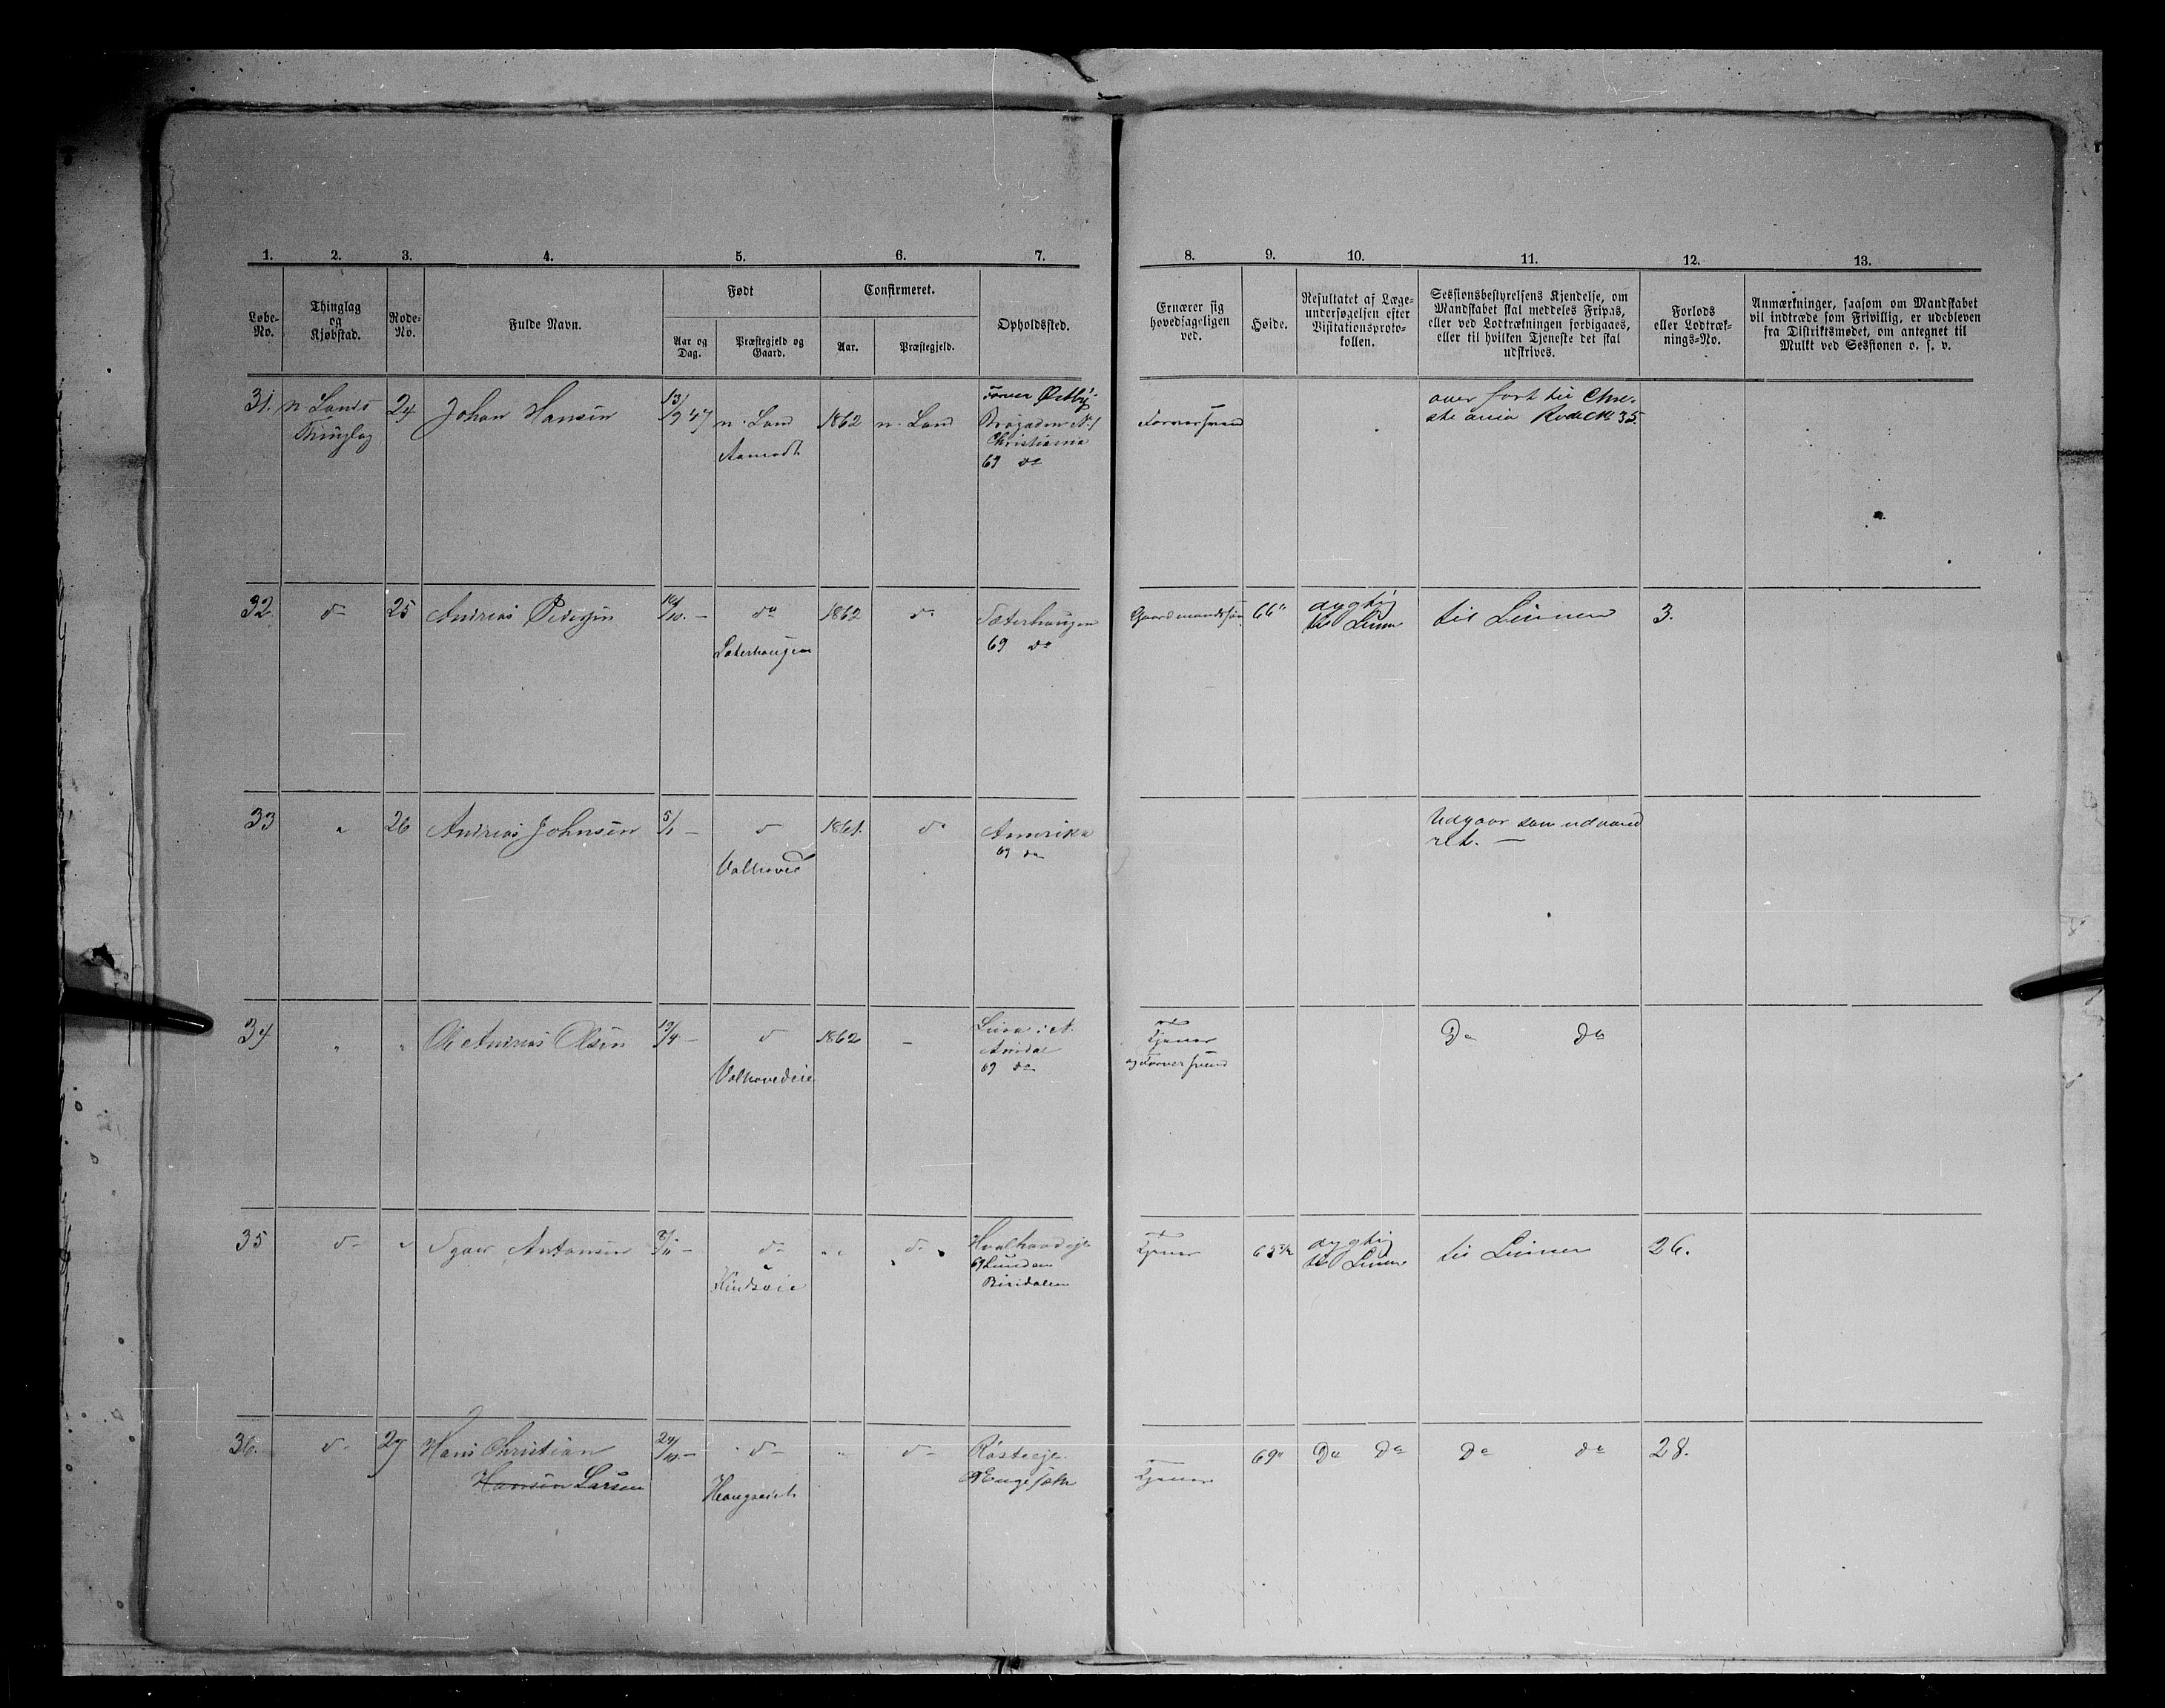 1. 2. 3. 4. 5. 6. 7. 8. 9. 10. 11. 12. 13.
Løbe-No.
Thinglag og Kjøbstad.
Rode-No.
Fulde Navn.
Født
Aar og Dag.
Præstegjeld og Gaard.
Confirmeret.
Aar.
Præstegjeld.
Opholdssted.
Ernærer sig hovedsageligen ved.
Høide.
Resultatet af Læge-
undersøgelsen efter
Visitationsproto-
kollen.
Sessionsbestyrelsens Kjendelse, om
Mandskabet skal meddeles Fripas,
eller ved Lodtrækningen forbigaaes,
eller til hvilken Tjeneste det skal
udskrives.
Forlods
eller Lodtræk-
nings-No.
Anmærkninger, saasom om Mandskabet
vil indtræde som Frivillig, er udebleven
fra Distriktsmødet, om antegnet til
Mulkt ved Sessionen o. s. v.
31. n. Lands Thinglag 24 Johan Hansen 13/9 47 n. Land Aamodt 1862 n. Land
Farver Østby
Brogaden N 1
Christiania
69 do
Farversvend
over ført til Chri-
stiania Rode No 35.
32 do 25 Andreas Pedersen /10 - do Sæterhaugen 1862 do Sæterhaugen
69 do
Gaardmandssøn 66" dygtig
til Linien
til Linien 3.
33 " 26 Andreas Johnsen 5/1 - do Valhoved 1861. do Amerika
69 do
Udgaar som udvand
ret. -
34 " " Ole Andreas Olsen 19/4 - do Valhovedeie 1862 -
69 do
Tjener
og Farversvend
Do do
35 do " Antonsen /11 - do " do
69
Tjener 65 1/2 dygtig
til Linien
til Linien 26.
36. do 27 Hans Christian
Hansen Larsen
24/10 - do " do Røsteeje
Tjener 69" Do Do Do do 28.